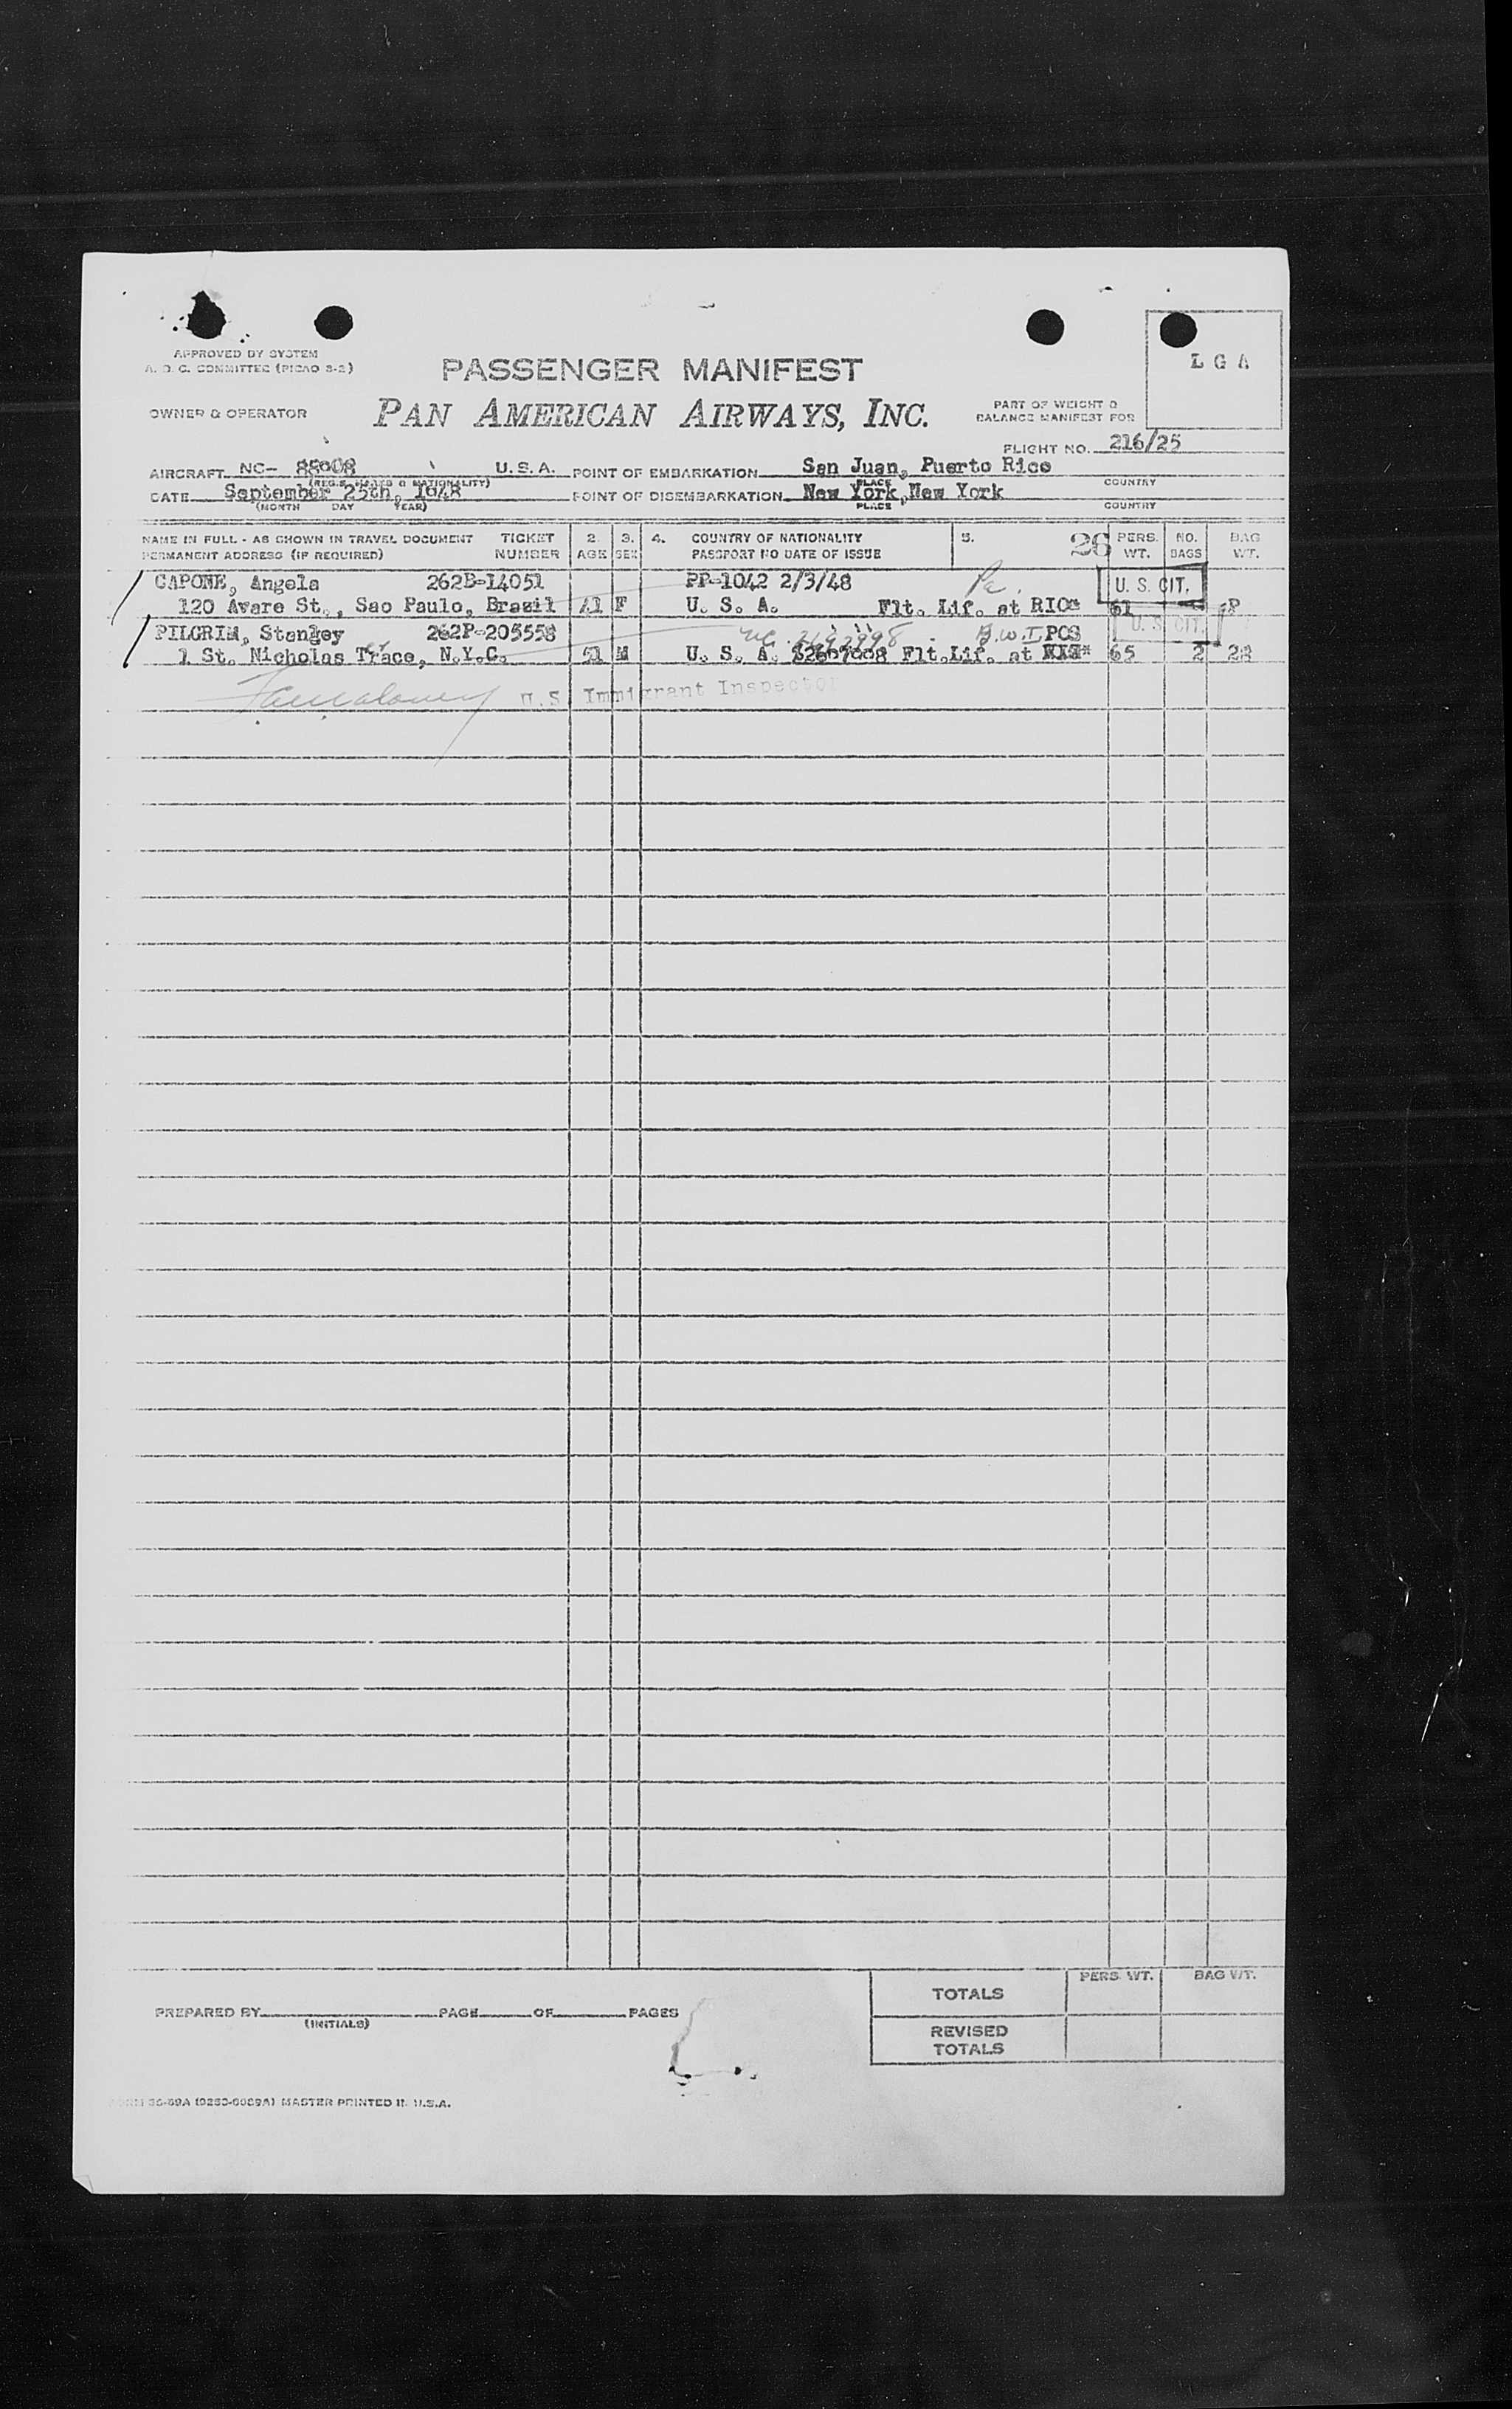 APPROVED BY SYSTEM
A. O. C. COMMITTEE (PICAO 3-2)
PASSENGER MANIFEST
L G A
OWNER & OPERATOR
PAN AMERICAN AIRWAYS, INC.
PART OF WEIGHT &
BALANCE MANIFEST FOR
FLIGHT NO. 216/25
AIRCRAFT NC- U. S. A. POINT OF EMBARKATION San Juan, Puerto Rico
PLACE COUNTRY
DATE September 25th, 1948 POINT OF DISEMBARKATION New York, New York
(MONTH DAY YEAR) PLACE COUNTRY
NAME IN FULL - AS SHOWN IN TRAVEL DOCUMENT TICKET 2. 3. 4. COUNTRY OF NATIONALITY 5. 26 PERS. NO. BAG
PERMANENT ADDRESS (IF REQUIRED) NUMBER AGE SEX PASSPORT NO DATE OF ISSUE WT. BAGS WT.
CAPONE, Angela 262B-14051 PP-1042 2/3/48 U. S. CIT.
120 Avare St., Sao Paulo, Brazil 41 F U. S. A. Flt. Lif. at RIO* 61
PILGRIM, Stanley 262P-205558 B.W.I. POS U. S. CIT.
1 St. Nicholas Trace, N.Y.C. 51 M U. S. A. Flt.Lif. at 65 2 28
U.S. Immigrant Inspector
PERS. WT. BAG WT.
TOTALS
PREPARED BY PAGE OF PAGES
(INITIALS)
REVISED
TOTALS
MASTER PRINTED IN U.S.A.